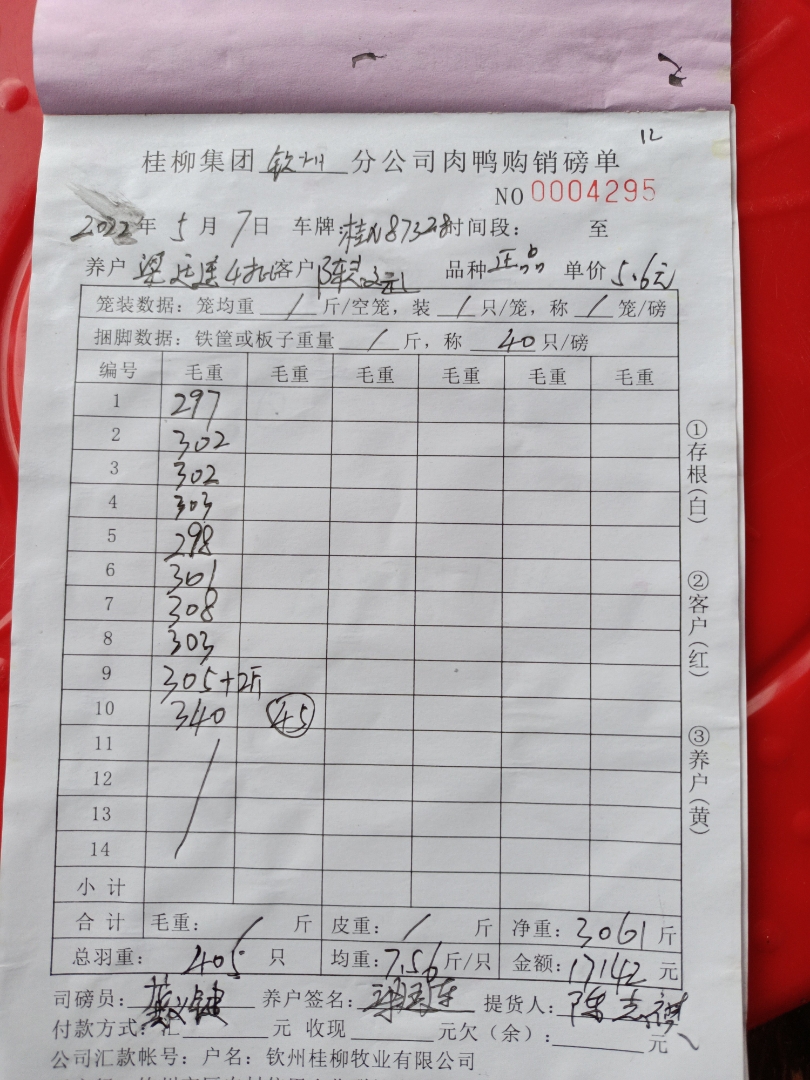 12
桂柳集团 钦州 分公司肉鸭购销磅单
NO 0004295
2022年 5月 7日 车牌:桂N87328 时间段: 至
养户 梁 4批 客户 陈 品种 正品 单价 5.6元
笼装数据:笼均重 / 斤/空笼,装 / 只/笼,称 / 笼/磅
捆脚数据:铁筐或板子重量 / 斤,称 40 只/磅
编号 毛重 毛重 毛重 毛重 毛重 毛重
1 297
2 302
3 302
4 303
5 298
6 301
7 308
8 303
9 305+2斤
10 340 45
11
12
13
14
小计
合计 毛重: / 斤 皮重: / 斤 净重: 3061 斤
总羽重: 405 只 均重:7.56斤/只 金额:17142 元
司磅员: 养户签名: 提货人: 陈志
付款方式:汇 元 收现 元欠(余): 元
公司汇款帐号:户名:钦州桂柳牧业有限公司
①存根(白)
②客户(红)
③养户(黄)